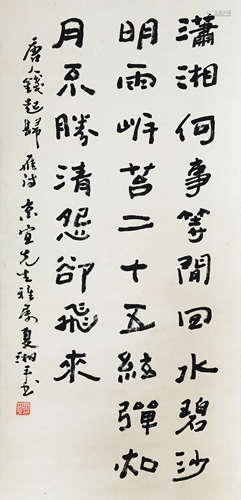 瀟湘何事等閒回水碧沙
明兩岍莒二十五絃彈如
月不勝清怨卻飛來
唐人錢起歸雁詩 景宜先生雅属 夏湘平书